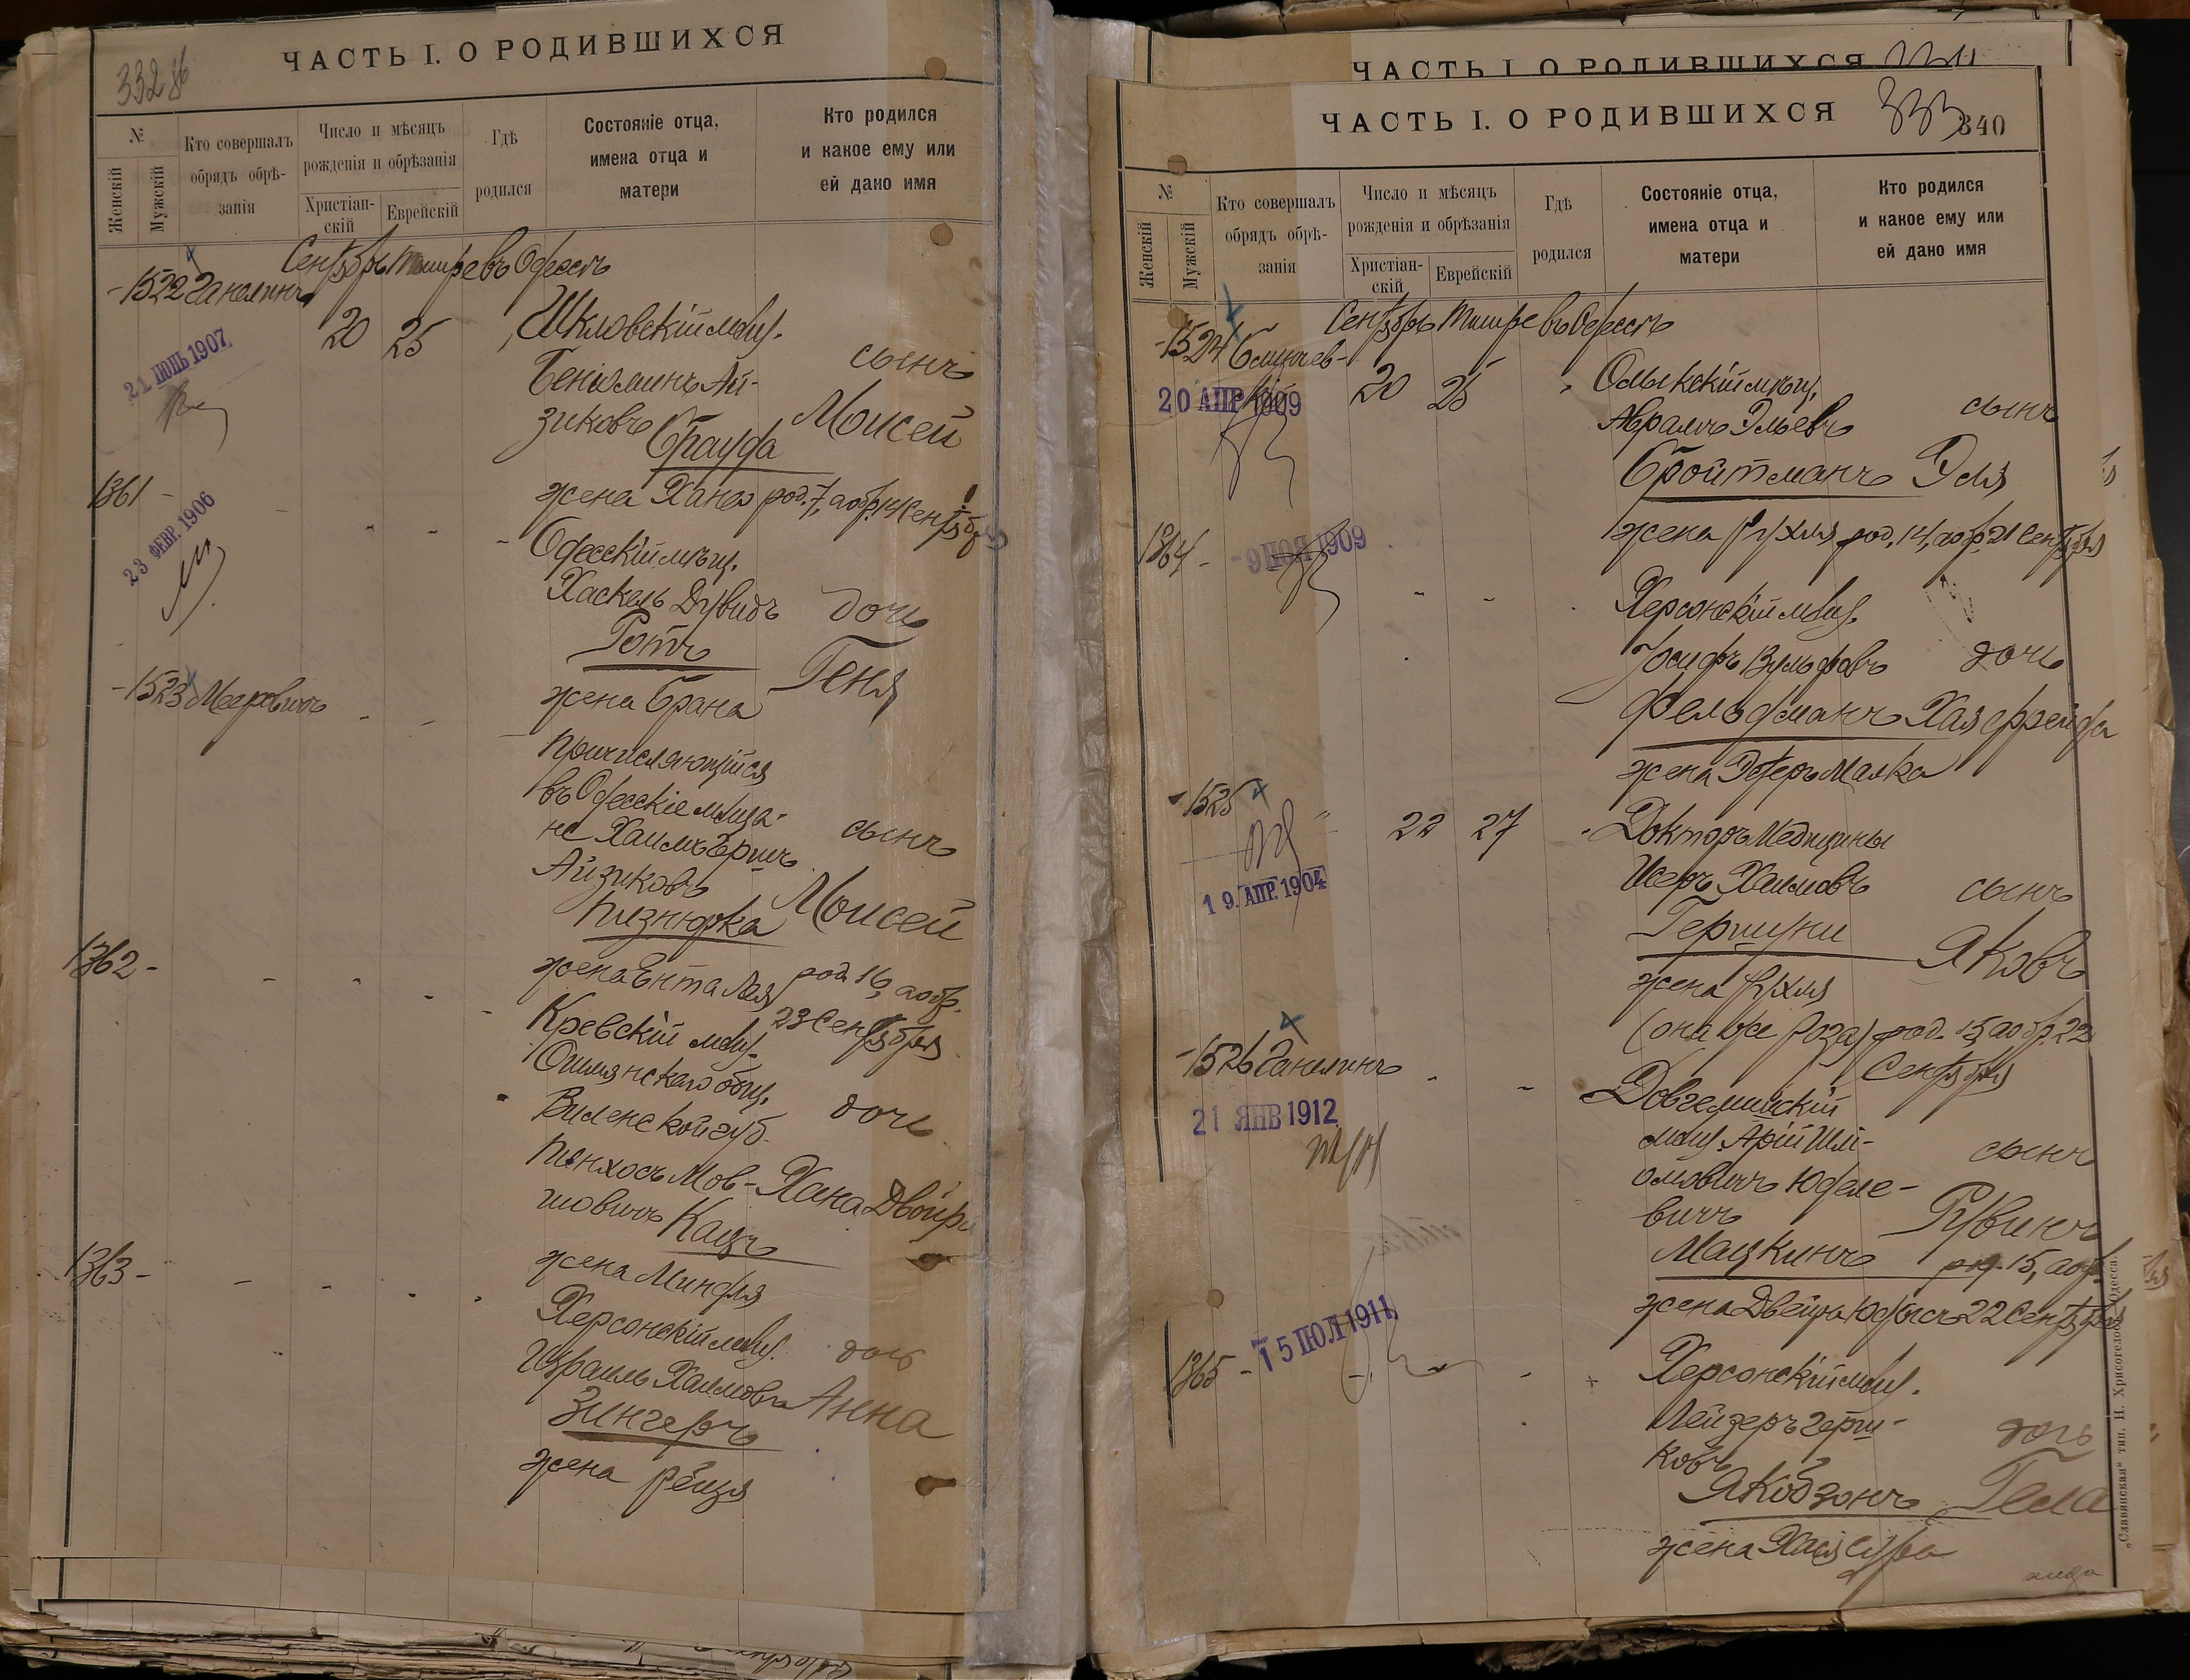 332
ЧАСТЬ I. О РОДИВШИХСЯ
№
Женскій
Мужскій
Кто совершалъ
обрядъ обрѣ-
занія
Число и мѣсяцъ
рожденія и обрѣзанія
Христіан-
скій
Еврейскій
Гдѣ
родился
Состояніе отца,
имена отца и
матери
Кто родился
и какое ему или
ей дано имя
Сентябрь Тишре въ Одессѣ
1522 Ганелинъ
20 25
Шкловскій мѣщ.
Беніаминъ Ай-
зиковъ
Брауда
сынъ
Моисей
21 ІЮНЬ 1907
жена Хана род. 7, а обр. 14 Сентября
1361 -
23 ФЕВР. 1906
Одесскій мѣщ.
Хаскель Дувидъ
Ротъ
жена Брана
дочь
Геня
-1523 Мееровичъ
Причисляющійся
въ Одесскіе мѣща-
не Хаимъ Гершъ
Айзиковъ
Пизнюрка
сынъ
Моисей
жена Ента Лея род. 16, а обр.
23 Сентября
1362 -
Кревскій мѣщ.
Ошмянскаго общ.
Виленской губ.
Пинхосъ Мов-
шовичъ Кацъ
жена Миндля
дочь
Хана Двойра
1363 -
Херсонскій мѣщ.
Израиль Хаимовъ
Зингеръ
жена Рейзя
дочь
Анна
ЧАСТЬ I. О РОДИВШИХСЯ
ЧАСТЬ I. О РОДИВШИХСЯ
333
340
№
Женскій
Мужскій
Кто совершалъ
обрядъ обрѣ-
занія
Число и мѣсяцъ
рожденія и обрѣзанія
Христіан-
скій
Еврейскій
Гдѣ
родился
Состояніе отца,
имена отца и
матери
Кто родился
и какое ему или
ей дано имя
Сентябрь Тишре въ Одессѣ
-1524
20 АПР 1909
20 25
Олыкскій мѣщ.
Абрамъ Эльевъ
Бройтманъ
сынъ
Эля
жена Рухля род. 14, а обр. 21 Сентября
1364 -
1909
Херсонскій мѣщ.
Іосифъ Вульфовъ
Фельдманъ
жена Эстеръ Малка
дочь
Хая Фрейда
-1525
19. АПР. 1904
22 27
Докторъ Медицины
Исеръ Хаимовъ
Гершуни
жена Рухля
(она же Роза) род. 15, а обр. 22
Сентября
сынъ
Яковъ
-1526 Ганелинъ
21 ЯНВ 1912
мѣщ. Арій Шлі-
омовичъ Юделе-
вичъ
Мацкинъ
сынъ
Рувинъ
род. 15, а обр.
жена Двейра Юдысъ 22 Сентября
1365 -
15 ІЮЛ 1911
Херсонскій мѣщ.
Лейзеръ Герш-
ковъ
Якобзонъ
жена Хая Сура
дочь
Гела
„Славянская“ тип. Н. Хрисогелосъ, Одесса.